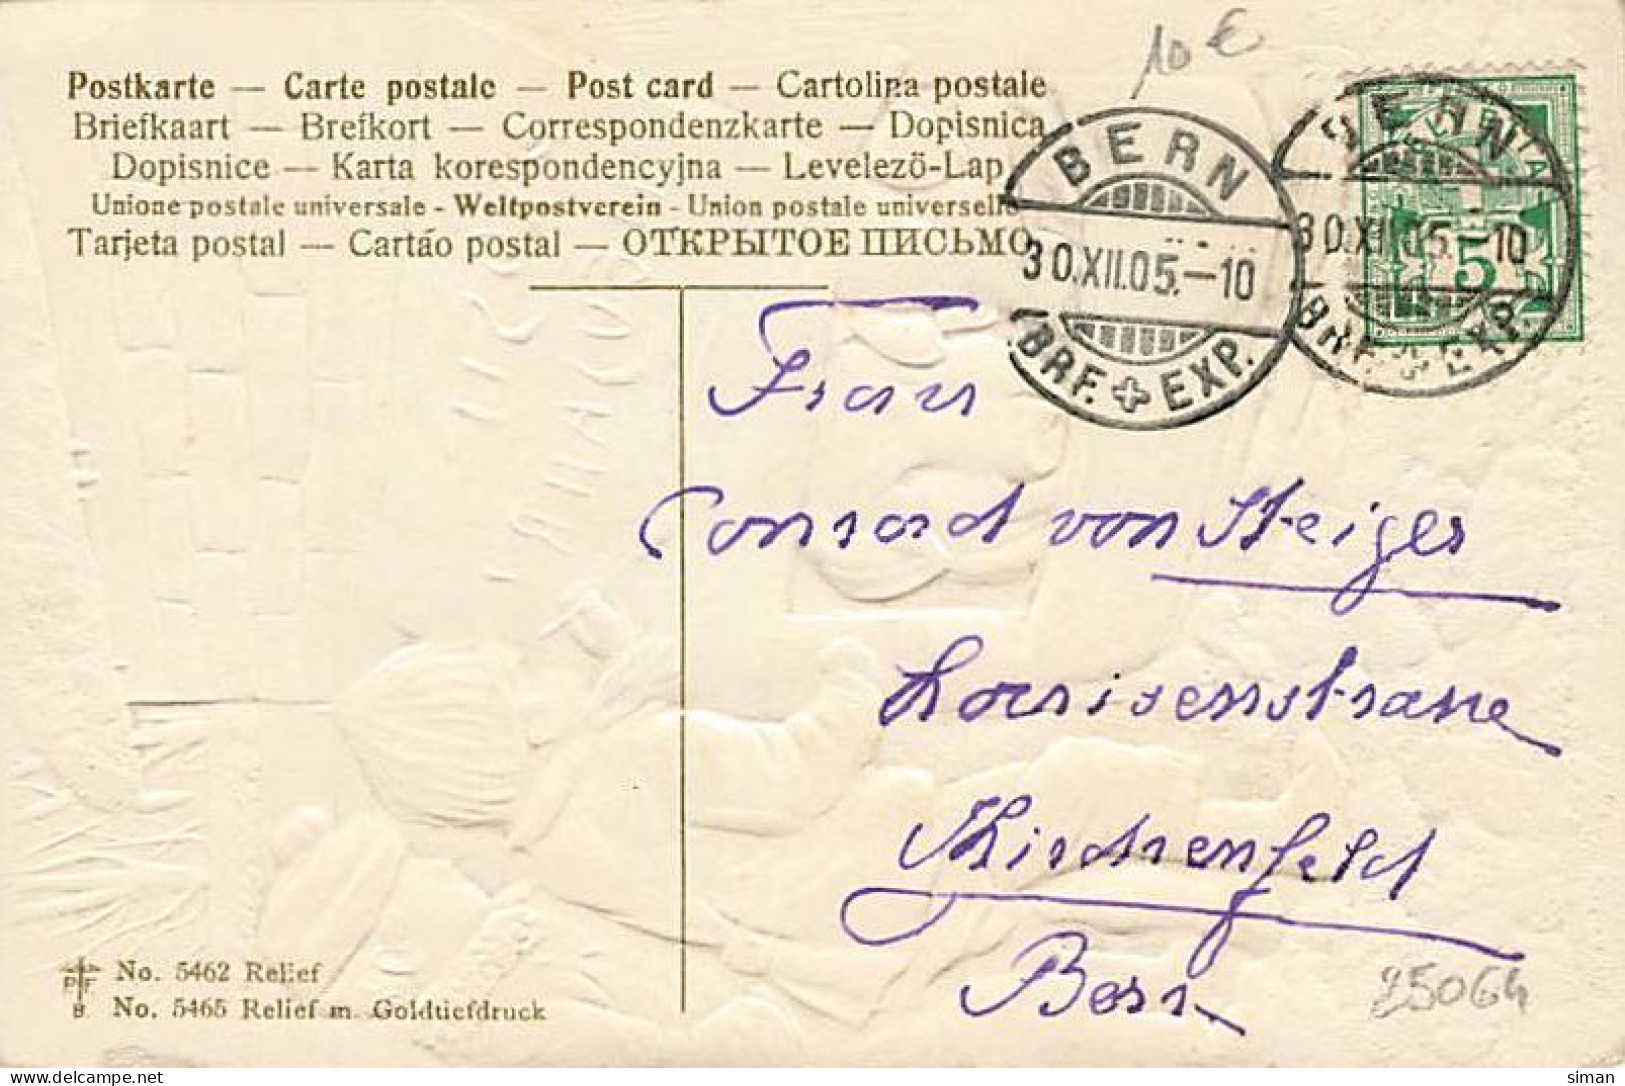 10 €
Postkarte — Carte postale — Post card — Cartolina postale
Briefkaart — Brefkort — Correspondenzkarte — Dopisnica
Dopisnice — Karta korespondencyjna — Levelező-Lap
Unione postale universale - Weltpostverein - Union postale universelle
Tarjeta postal — Cartáo postal — ОТКРЫТОЕ ПИСЬМО
BERN
30.XII.05.–10
BRF. EXP.
BERN
30.XII.05.–10
BRF. EXP.
HELVETIA
5
Frau
Conrad von Steiger
Louisenstrasse
Kirchenfeld
Bern
PFB
No. 5462 Relief
No. 5465 Relief m. Goldtiefdruck
25064
http://www.delcampe.net
siman